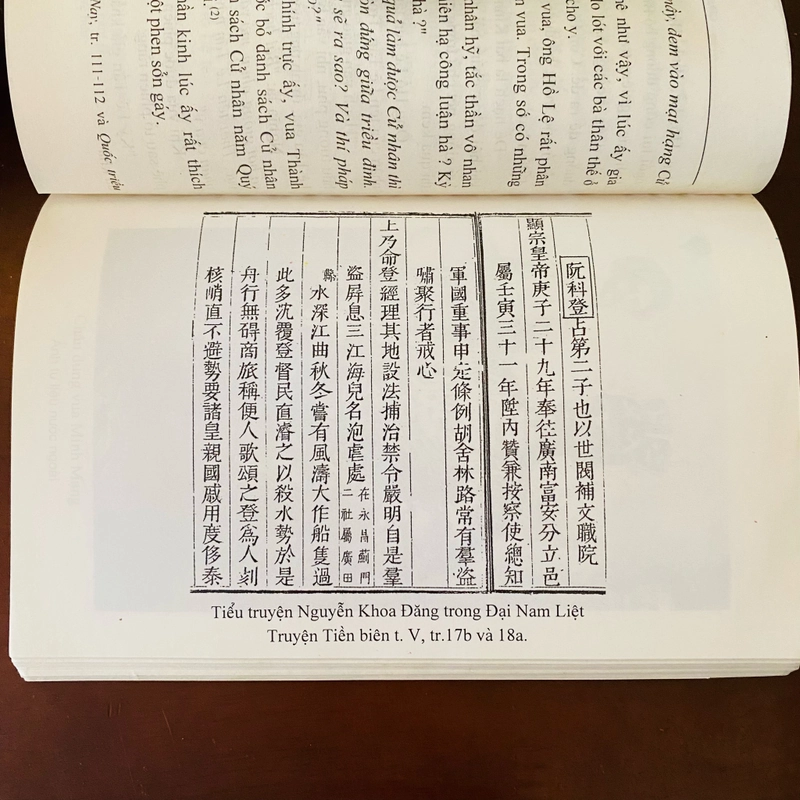 đem vào mạt hạng Cử
như vậy, vì lúc ấy gia
lo lót với các bà thân thế ở
cho y.
vua, ông Hồ Lệ rất phân
vua. Trong số có những
nhân hỹ, tắc thần vô nhan
hạ công luận hà ? Kỳ
hà ?"
quả làm được Cử nhân thì
đứng giữa triều đình
sẽ ra sao? Và thí pháp
trực ấy, vua Thành
bỏ danh sách Cử nhân
sách Cử nhân năm Quý
(2)
kinh lúc ấy rất thích
phen sởn gáy.
Nay, tr. 111-112 và Quốc triều
阮科登占第二子也以世閥補文職院
顯宗皇帝庚子二十九年奉往廣南富安分立邑
屬壬寅三十一年陞內贊兼按察使總知
軍國重事申定條例胡舍林路常有羣盜
嘯聚行者戒心
上乃命登經理其地設法捕治禁令嚴明自是羣
盜屏息三江海兒名泡虐處在永昌薊門二社屬廣田
縣水深江曲秋冬嘗有風濤大作船隻過
此多沈覆登督民直濬之以殺水勢於是
舟行無碍商旅稱便人歌頌之登爲人刻
核峭直不避勢要諸皇親國戚用度侈泰
Tiểu truyện Nguyễn Khoa Đăng trong Đại Nam Liệt
Truyện Tiền biên t. V, tr.17b và 18a.